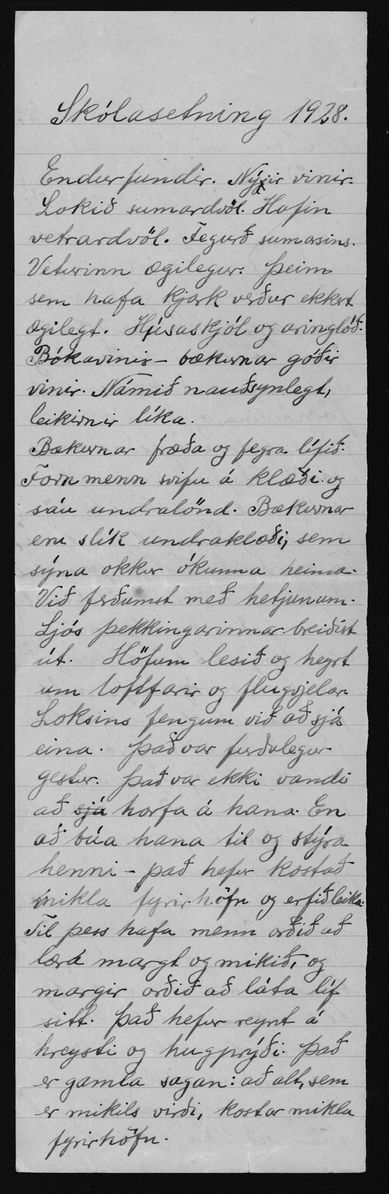 Skólasetning 1928.
Endurfundir. Nýjir vinir.
Lokið sumardvöl. Hafin
vetrardvöl. Fegurð sumarsins.
Veturinn ægilegur. Þeim
sem hafa kjark verður ekkert
ægilegt. Húsaskjól og aringlóð.
Bókavinir - bækurnar góðir
vinir. Námið nauðsynlegt,
leikirnir líka.
Bækurnar fræða og fegra lífið.
Forn menn svifu á klæði og
sáu undralönd. Bækurnar
eru slík undraklæði, sem
sýna okkur ókunna heima.
Við ferðumst með hetjunum.
Ljós þekkingarinnar breiðist
út. Höfum lesið og heyrt
um loftfarir og flugvjelar
Loksins fengum við að sjá
eina. Það var furðulegur
gestur. Það var ekki vandi
að sjá horfa á hana. En
að búa hana til og stýra
henni - það hefur kostað
mikla fyrirhöfn og erfiðleika.
Til þess hafa menn orðið að
læra margt og mikið, og
margir orðið að láta líf
sitt. Það hefur reynt á
hreysti og hugprýði. Það
er gamla sagan: að alt, sem
er mikils virði, kostar mikla
fyrirhöfn.